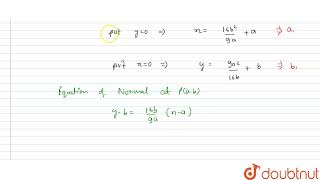 put y=0 ⇒ x = 16b²/9a + a ⇒ a₁
put x=0 ⇒ y = 9a²/16b + b ⇒ b₁
Equation of Normal at P(a,b)
y-b = 16b/9a (x-a)
doubtnut